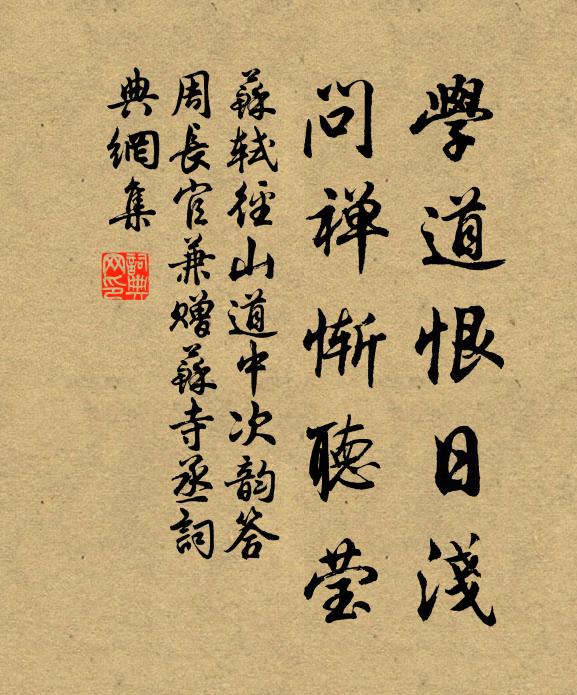 學道恨日淺
問禪慚聽瑩
蘇軾徑山道中次韵答
周長官兼贈蘇寺丞詞
典網集
詞典网印